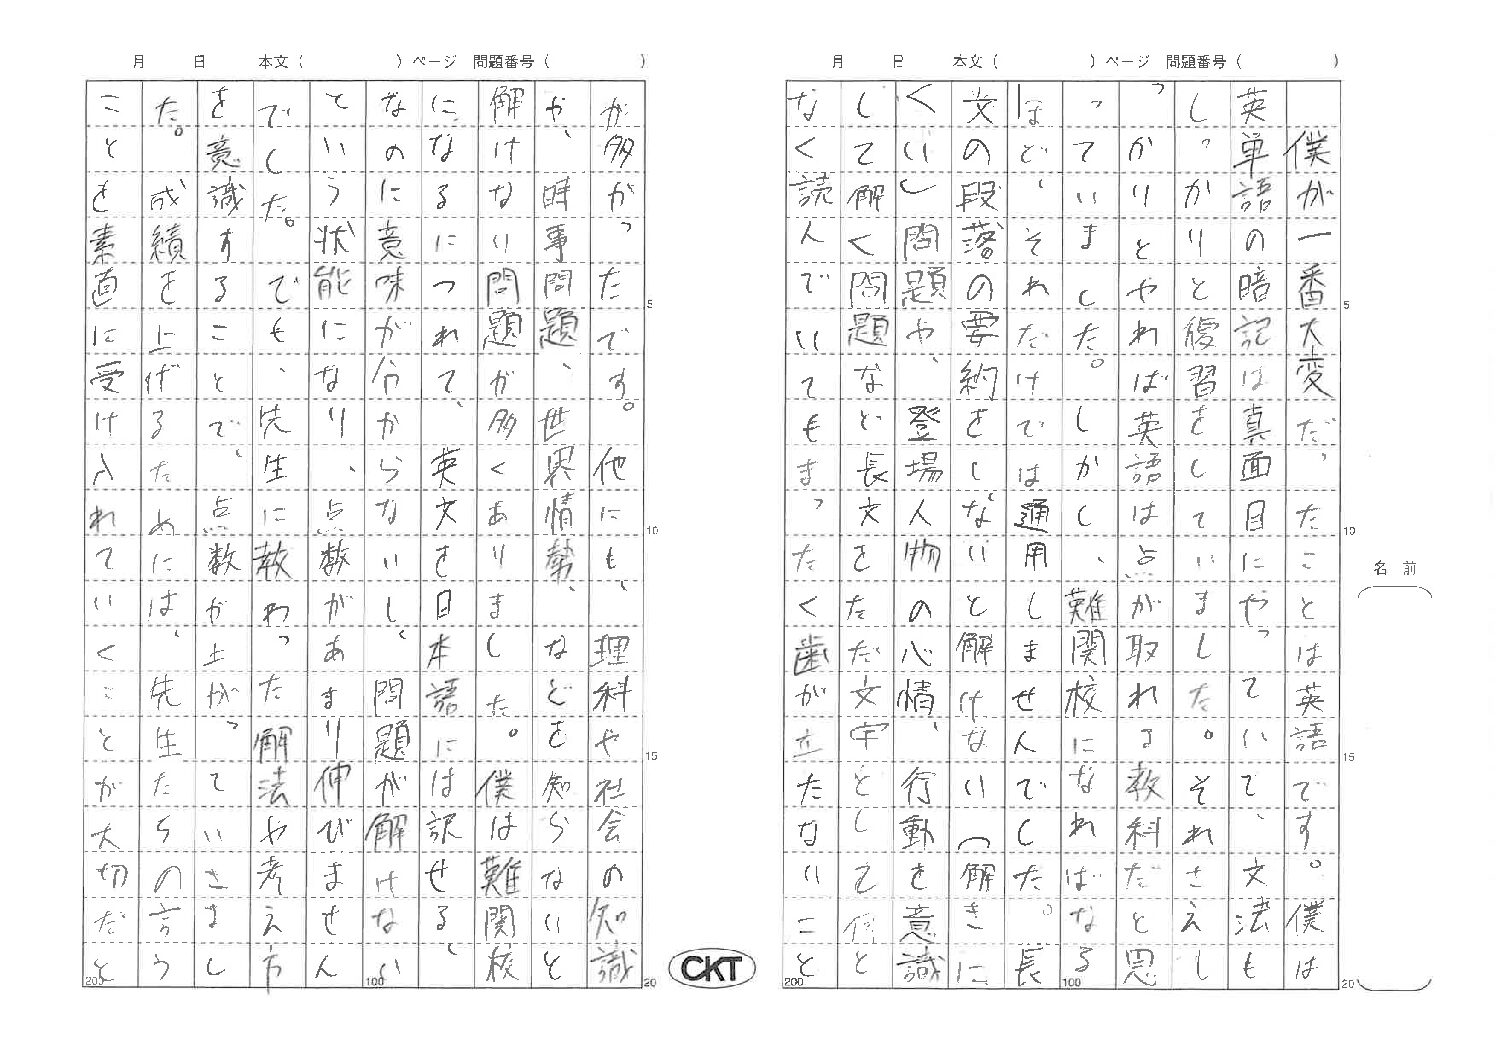 月　日　本文（　）ページ　問題番号（　）
名前
僕が一番大変だったことは英語です。僕は
英単語の暗記は真面目にやっていて、文法も
しっかりと復習をしていました。それさえし
っかりとやれば英語は点が取れる教科だと思
っていました。しかし、難関校になればなる
ほど、それだけでは通用しませんでした。長
文の段落の要約をしないと解けない（解きに
くい）問題や、登場人物の心情、行動を意識
して解く問題など長文をただ文字として何と
なく読んでいてもまったく歯が立たないこと
5
10
15
20
100
200
CKT
月　日　本文（　）ページ　問題番号（　）
が多かったです。他にも、理科や社会の知識
や、時事問題、世界情勢、などを知らないと
解けない問題が多くありました。僕は難関校
になるにつれて、英文を日本語には訳せる、
なのに意味が分からないし、問題が解けない
という状能になり、点数があまり伸びません
でした。でも、先生に教わった解法や考え方
を意識することで、点数が上がっていきまし
た。成績を上げるためには、先生たちの言う
ことを素直に受け入れていくことが大切だと
5
10
15
20
100
200